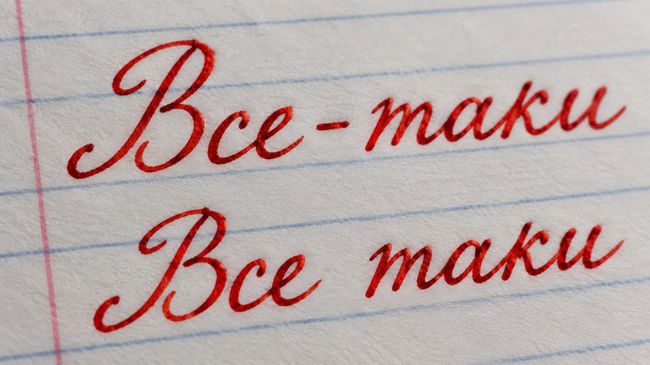 Все-таки
Все таки